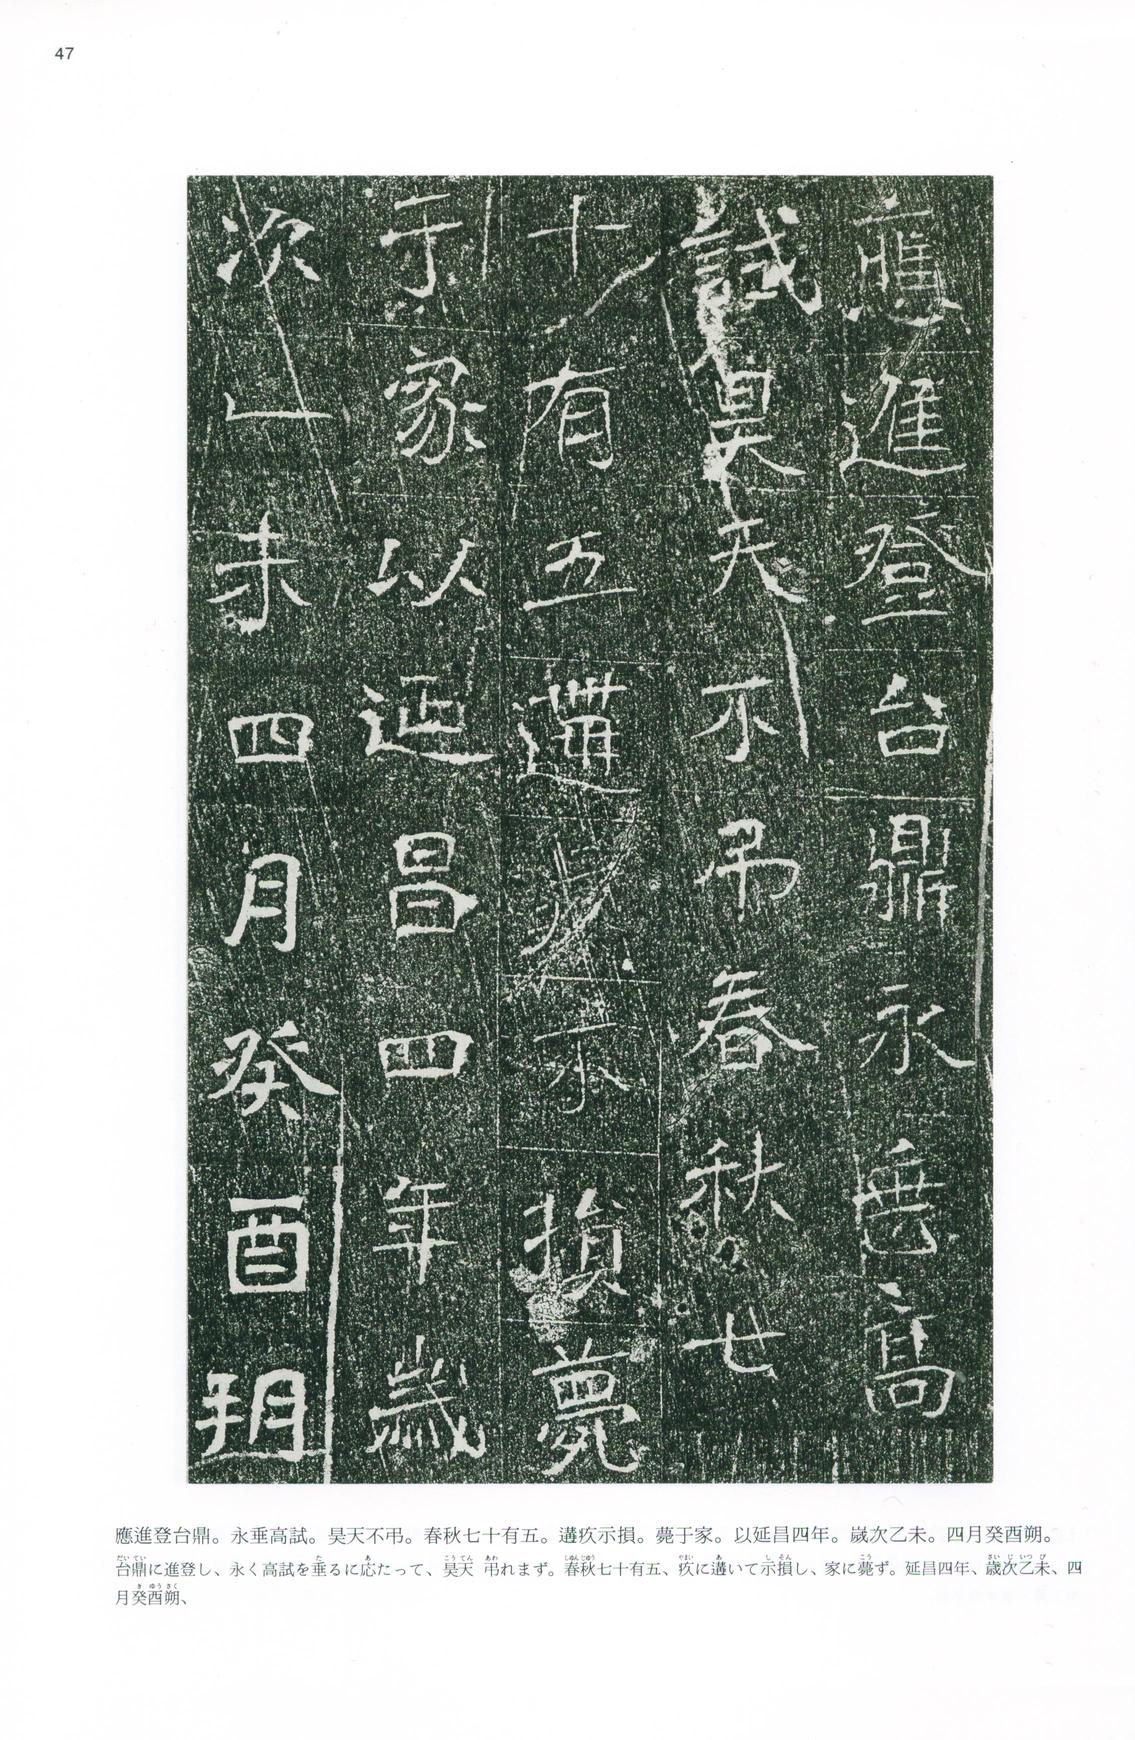 47
應進登台鼎永垂高
試昊天不弔春秋七
十有五遘疚示損薨
于家以延昌四年歲
次乙未四月癸酉朔
應進登台鼎。永垂高試。昊天不弔。春秋七十有五。遘疚示損。薨于家。以延昌四年。歲次乙未。四月癸酉朔。
台鼎に進登し、永く高試を垂るに応たって、昊天 弔れまず。春秋七十有五、疚に遘いて示損し、家に薨ず。延昌四年、歳次乙未、四
月癸酉朔、